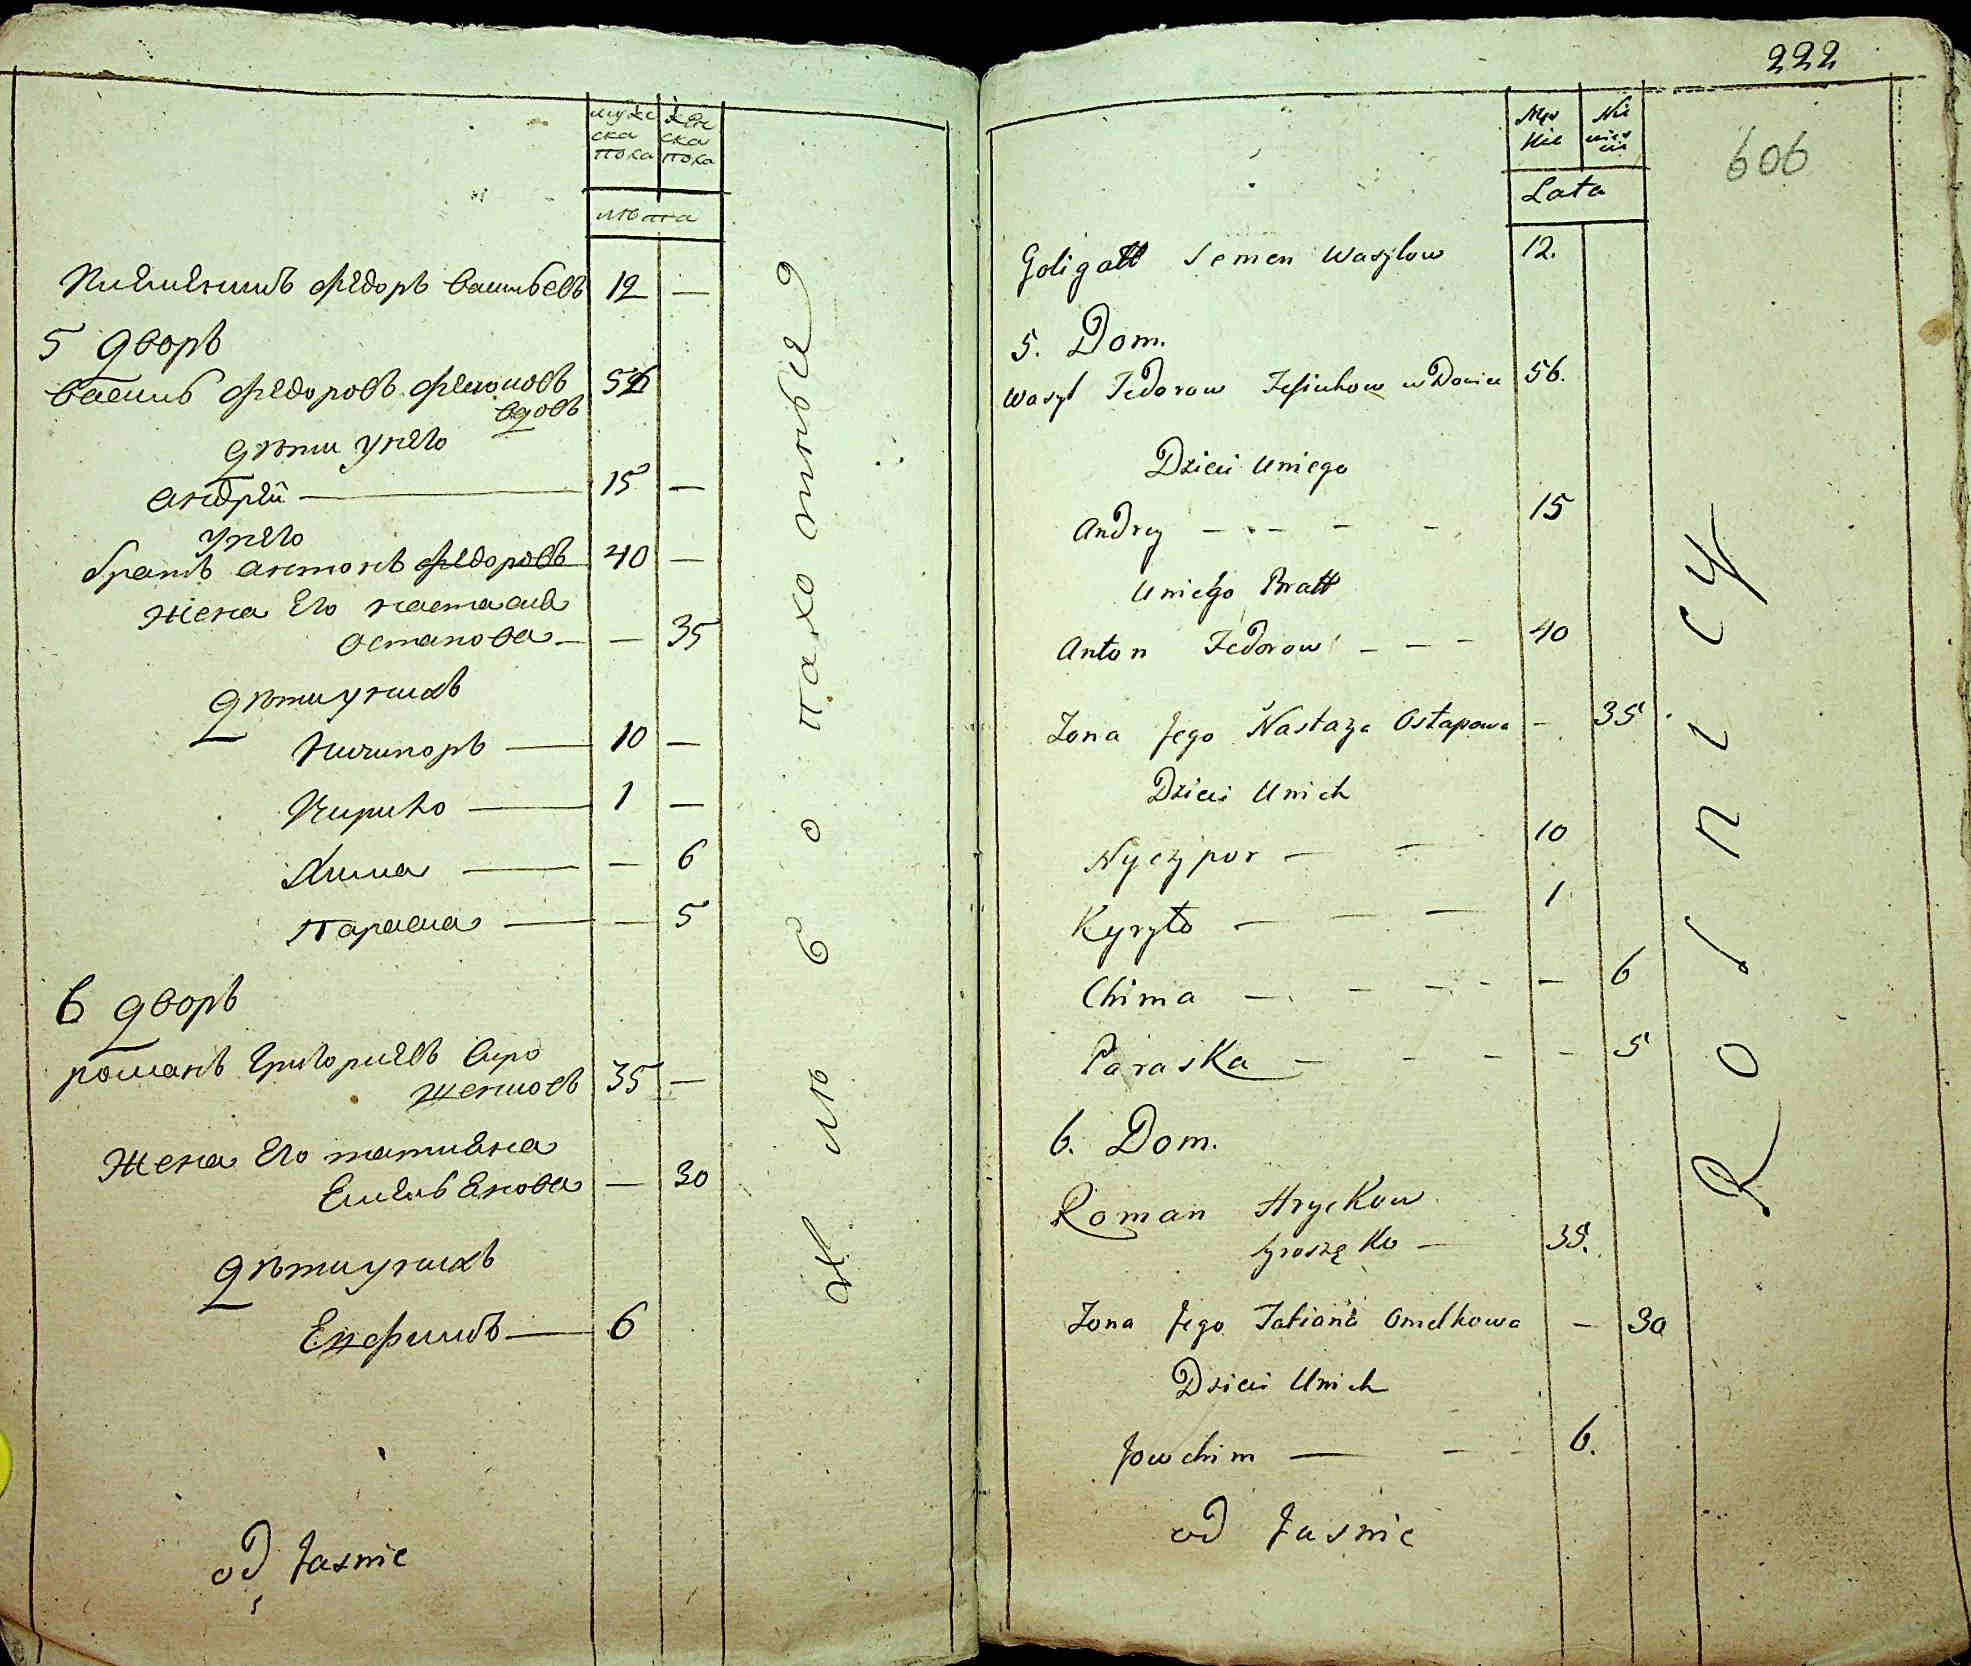 мужеска пола
женска пола
лѣта
Федоръ Васильевъ 12 —
5 дворъ
Василь Федоровъ
вдовъ
дѣти унего
Андрей — 15 —
унего
братъ Антонъ Федоровъ 40 —
жена Его Настасия
Остапова — — 35
дѣти унихъ
Ничипоръ — 10 —
Кирило — 1 —
Хима — — 6
Параска — — 5
6 дворъ
романъ Григориевъ Сиро
женковъ 35 —
Жена Его татияна
Емельянова — 30
дѣти унихъ
Ехфимъ — 6
od Jasnie
хлѣбопахотныя
222
606
Męs
kie
Nie
wies
cie
Lata
Semen Wasylow 12.
5. Dom.
Wasyl Fedorow wDowiec 56.
Dzieci Uniego
Andrey — — — — 15
Uniego Bratt
Anton Fedorow — — — 40
Zona Jego Nastazya Ostapowa — 35
Dzieci Unich
Nyczypor — — 10
Kyryło — — — 1
Chima — — — — — 6
Paraska — — — — 5
6. Dom.
Roman Hryckow
Syroszęko — 35.
Zona Jego Tatiana Omelkowa — 30
Dzieci Unich
Jowchim — — — 6.
od Jasnie
Rolnicy